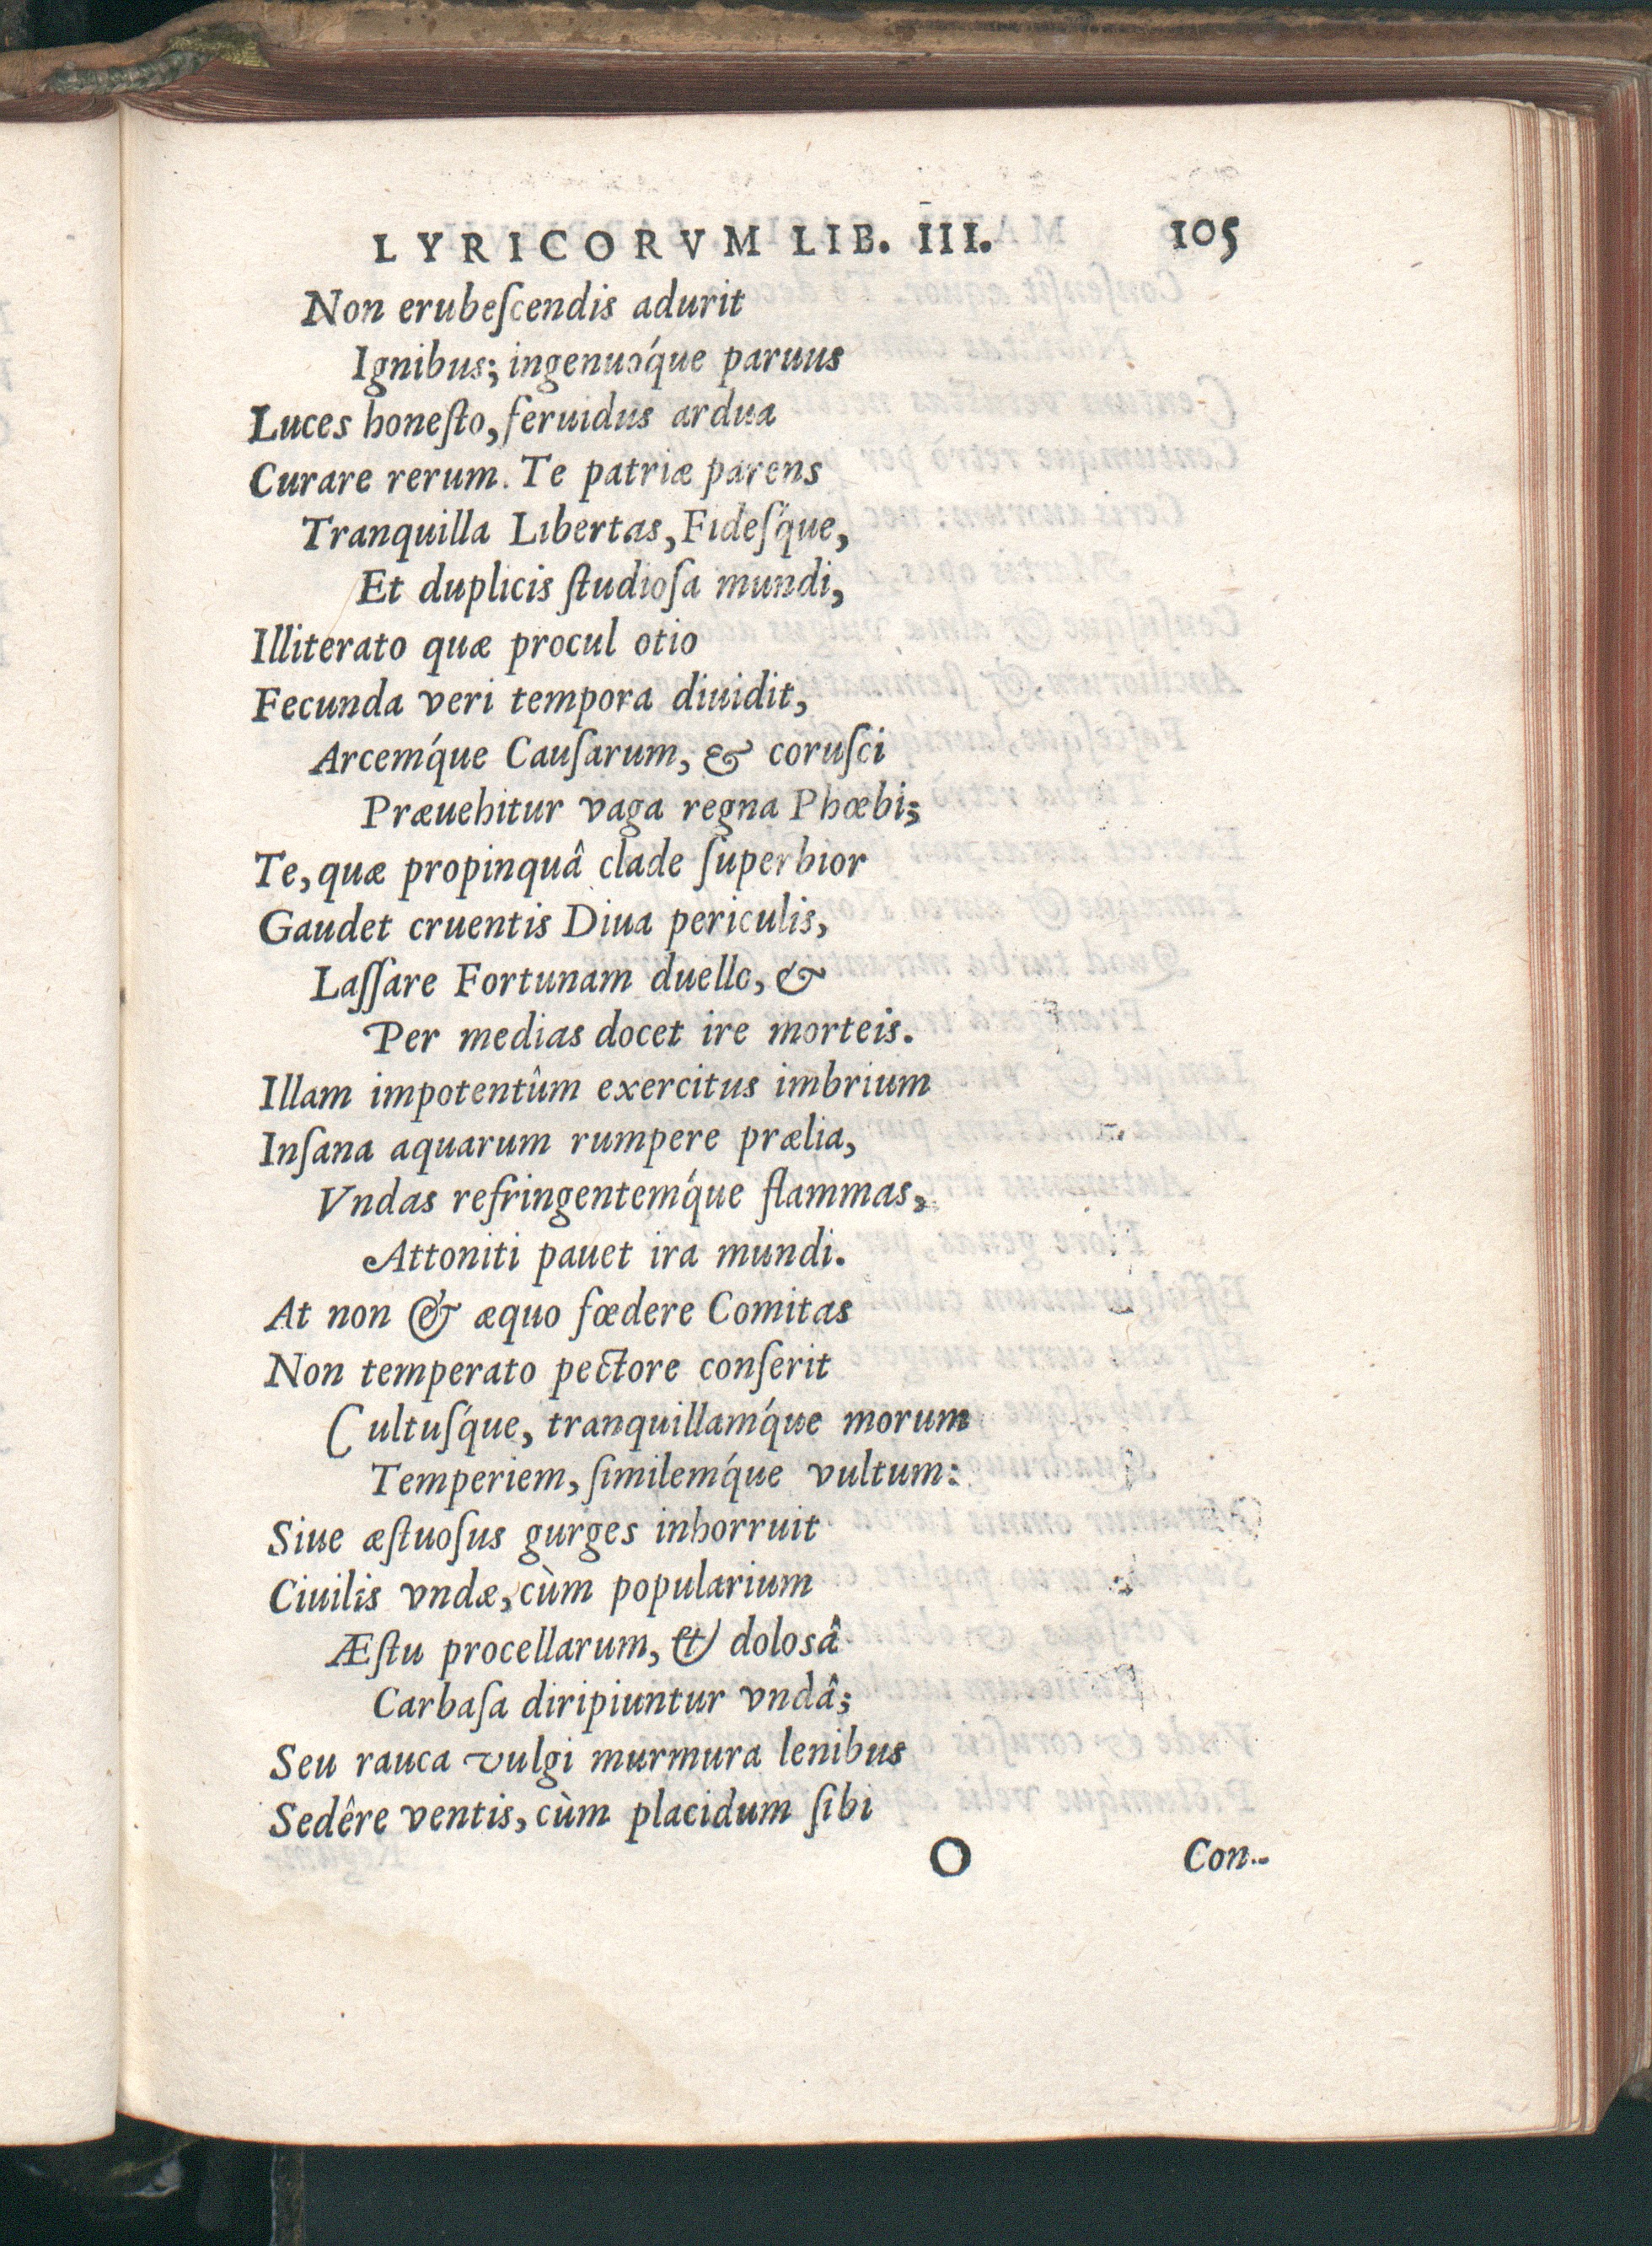 LYRICORVM LIB. III. 105
Non erubeſcendis adurit
Ignibus; ingenuóque paruus
Luces honeſto, feruidus ardua
Curare rerum. Te patriæ parens
Tranquilla Libertas, Fideſq́ue,
Et duplicis ſtudioſa mundi,
Illiterato quæ procul otio
Fecunda veri tempora diuidit,
Arcemq́ue Cauſarum, & coruſci
Præuehitur vaga regna Phœbi;
Te, quæ propinquâ clade ſuperbior
Gaudet cruentis Diua periculis,
Laſſare Fortunam duello, &
Per medias docet ire morteis.
Illam impotentûm exercitus imbrium
Inſana aquarum rumpere prælia,
Vndas refringentemq́ue flammas,
Attoniti pauet ira mundi.
At non & æquo fœdere Comitas
Non temperato pectore conſerit
Cultuſq́ue, tranquillamq́ue morum
Temperiem, ſimilemq́ue vultum:
Siue æſtuoſus gurges inhorruit
Ciuilis vndæ, cùm popularium
Æſtu procellarum, & dolosâ
Carbaſa diripiuntur vndâ;
Seu rauca vulgi murmura lenibus
Sedêre ventis, cùm placidum ſibi
O Con-